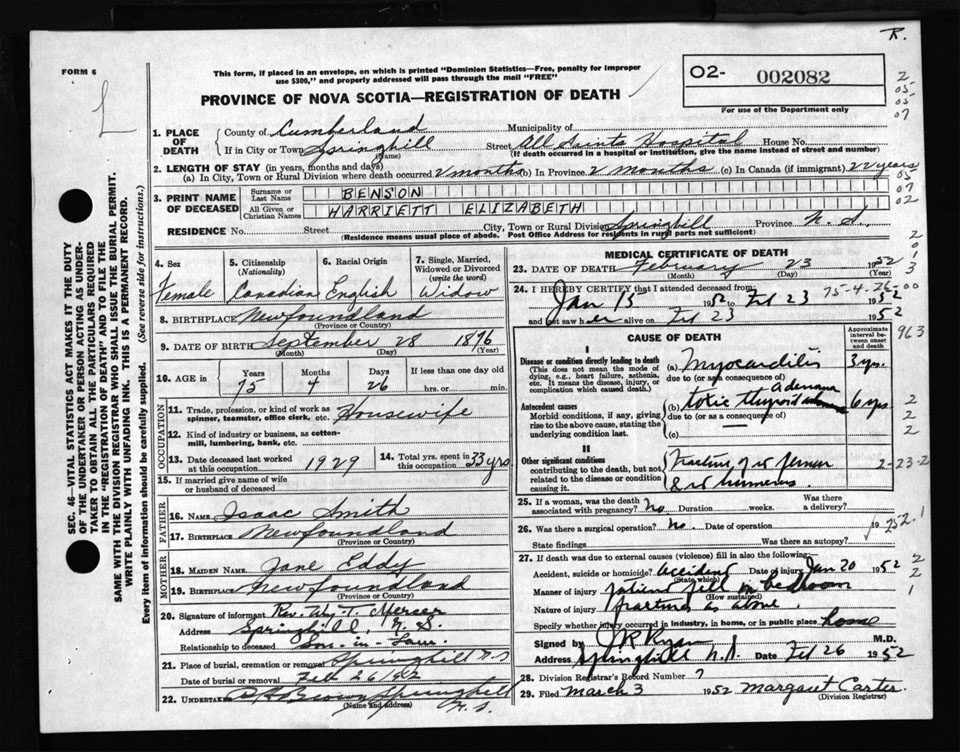 R.
FORM 6
L
This form, if placed in an envelope, on which is printed "Dominion Statistics—Free, penalty for improper
use $300," and properly addressed will pass through the mail "FREE"
PROVINCE OF NOVA SCOTIA—REGISTRATION OF DEATH
O2- 002082
For use of the Department only
2
05-
05-
07
1. PLACE OF DEATH
County of Cumberland Municipality of
If in City or Town Springhill Street All Saints Hospital House No.
(Name) (If death occurred in a hospital or institution, give the name instead of street and number)
2. LENGTH OF STAY (in years, months and days)
(a) In City, Town or Rural Division where death occurred 2 months (b) In Province 2 months (c) In Canada (if immigrant) 22 years
3. PRINT NAME OF DECEASED
Surname or Last Name BENSON
All Given or Christian Names HARRIETT ELIZABETH
05
07
02
RESIDENCE No. Street City, Town or Rural Division Springhill Province N.S.,
(Residence means usual place of abode. Post Office Address for residents in rural parts not sufficient)
SEC. 46—VITAL STATISTICS ACT MAKES IT THE DUTY
OF THE UNDERTAKER OR PERSON ACTING AS UNDER-
TAKER TO OBTAIN ALL THE PARTICULARS REQUIRED
IN THE "REGISTRATION OF DEATH" AND TO FILE THE
SAME WITH THE DIVISION REGISTRAR WHO SHALL ISSUE THE BURIAL PERMIT.
WRITE PLAINLY WITH UNFADING INK. THIS IS A PERMANENT RECORD.
Every item of information should be carefully supplied. (See reverse side for instructions.)
4. Sex Female
5. Citizenship (Nationality) Canadian
6. Racial Origin English
7. Single, Married, Widowed or Divorced (write the word) Widow
8. BIRTHPLACE Newfoundland
(Province or Country)
9. DATE OF BIRTH September 28 1876
(Month) (Day) (Year)
10. AGE in Years Months Days If less than one day old
75 4 26 hrs. or min.
OCCUPATION
11. Trade, profession, or kind of work as
spinner, teamster, office clerk, etc. Housewife
12. Kind of industry or business, as cotton-
mill, lumbering, bank, etc.
13. Date deceased last worked
at this occupation 1929
14. Total yrs. spent
in this occupation 33 yrs
15. If married give name of wife
or husband of deceased
FATHER
16. NAME Isaac Smith
17. BIRTHPLACE Newfoundland
(Province or Country)
MOTHER
18. MAIDEN NAME Jane Eddy
19. BIRTHPLACE Newfoundland
(Province or Country)
20. Signature of informant Rev. Wm. T. Mercer
Address Springhill, N.S.
Relationship to deceased Son-in-Law
21. Place of burial, cremation or removal Springhill N.S
Date of burial or removal Feb 26/52
22. UNDERTAKER Brown Springhill
(Name and address) N.S.
MEDICAL CERTIFICATE OF DEATH
23. DATE OF DEATH February 23 1952
(Month) (Day) (Year)
2
0
1
3
24. I HEREBY CERTIFY that I attended deceased from: 75-4-26-00
Jan 15 1952 to Feb 23 1952
and last saw her alive on Feb 23 1952
CAUSE OF DEATH
Approximate interval between onset and death
963
I
Disease or condition directly leading to death
(This does not mean the mode of dying, e.g., heart failure, asthenia, etc. It means the disease, injury, or complication which caused death.)
(a) Myocarditis 3 yrs.
due to (or as a consequence of)
Antecedent causes
Morbid conditions, if any, giving rise to the above cause, stating the underlying condition last.
(b) toxic thyroid adenoma 6 yrs
due to (or as a consequence of)
(c)
2
2
2
II
Other significant conditions
contributing to the death, but not related to the disease or condition causing it.
Fracture of rt femur
& rt humerus
2-23-2
25. If a woman, was the death associated with pregnancy? no Duration weeks. Was there a delivery?
26. Was there a surgical operation? no. Date of operation 19
State findings Was there an autopsy?
27. If death was due to external causes (violence) fill in also the following:
Accident, suicide or homicide? accident Date of injury Jan 20 1952
(State which)
Manner of injury patient fell in bedroom
(How sustained)
Nature of injury fractures as above.
Specify whether injury occurred in industry, in home, or in public place home
2
2
1
Signed by J R Ryan M.D.
Address Springhill N.S. Date Feb 26 1952
28. Division Registrar's Record Number 7
29. Filed March 3 1952 Margaret Carter.
(Division Registrar)